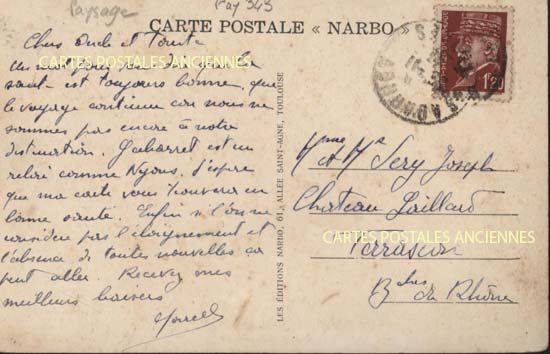 Paysage
Pay 343
CARTE POSTALE « NARBO »
Cher Oncle et Tante
un mot pour vous dire que la
santé est toujours bonne, que
le voyage continue car nous ne
sommes pas encore à notre
distination. Gabarret est un
relai comme Nyons. J'espère
que ma carte vous trouvera en
bonne santé. Enfin si l'on ne
considère pas l'éloignement et
l'absence de toutes nouvelles ça
peut aller. Recevez mes
meilleurs baisers
Marcel
LES ÉDITIONS NARBO, 61, ALLÉE SAINT-AGNE, TOULOUSE
1f20
Mme et Mr Sery Joseph
Chateau Gaillard
Tarascon
B. ches du Rhône
CARTES POSTALES ANCIENNES
CARTES POSTALES ANCIENNES